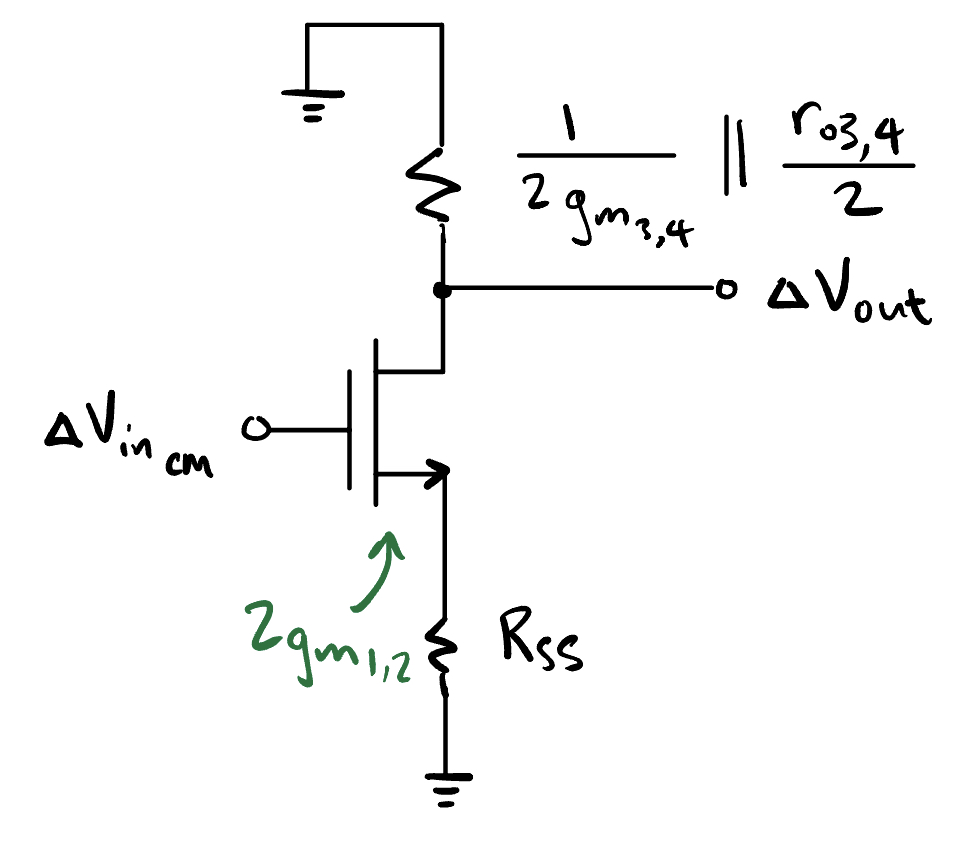 1 / 2 gm3,4 || ro3,4 / 2
ΔVout
ΔVin cm
2gm1,2
RSS